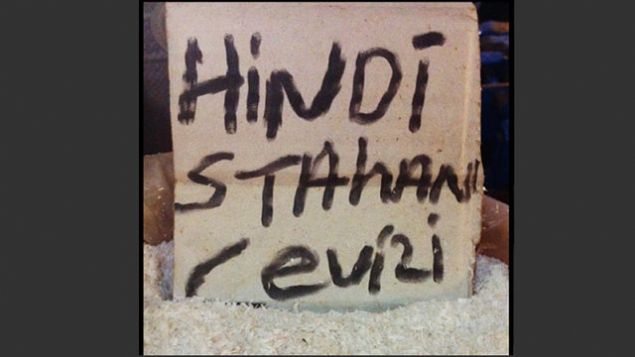 HİNDİ
STAhANI
CeVİZİ